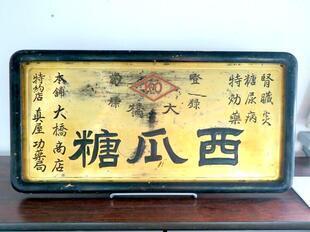 腎臓炎
糖尿病
特効薬
登録
商標
大橋
西瓜糖
本舗 大橋商店
特約店 真屋功薬局